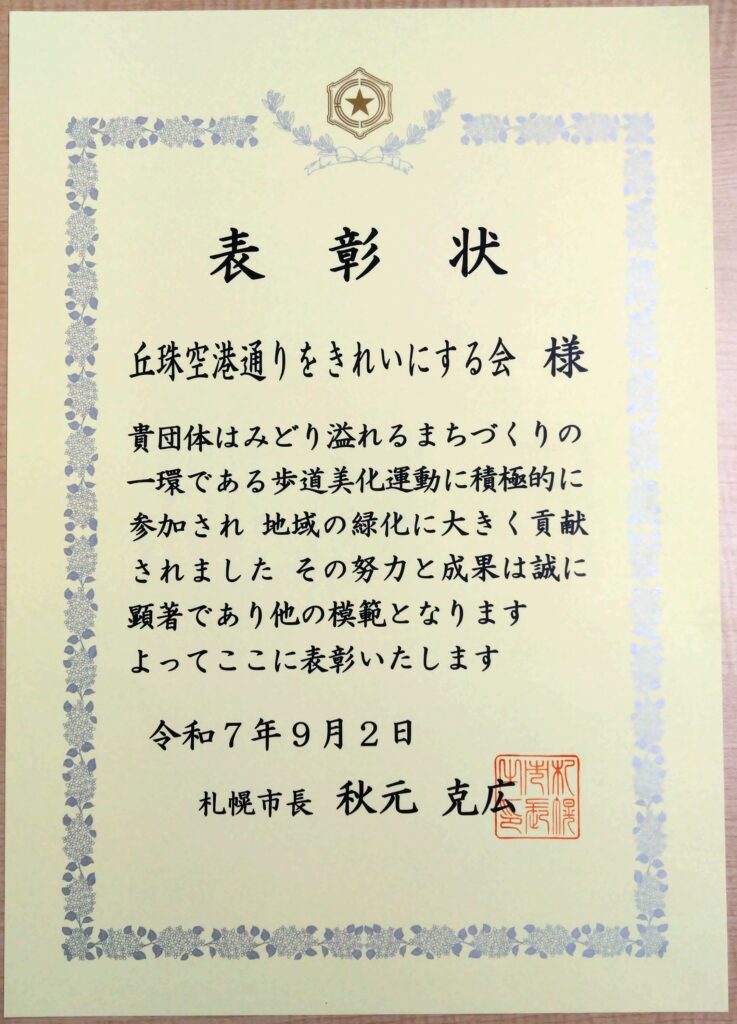 表彰状
丘珠空港通りをきれいにする会 様
貴団体はみどり溢れるまちづくりの
一環である歩道美化運動に積極的に
参加され 地域の緑化に大きく貢献
されました その努力と成果は誠に
顕著であり他の模範となります
よってここに表彰いたします
令和7年9月2日
札幌市長 秋元 克広
札幌市長之印